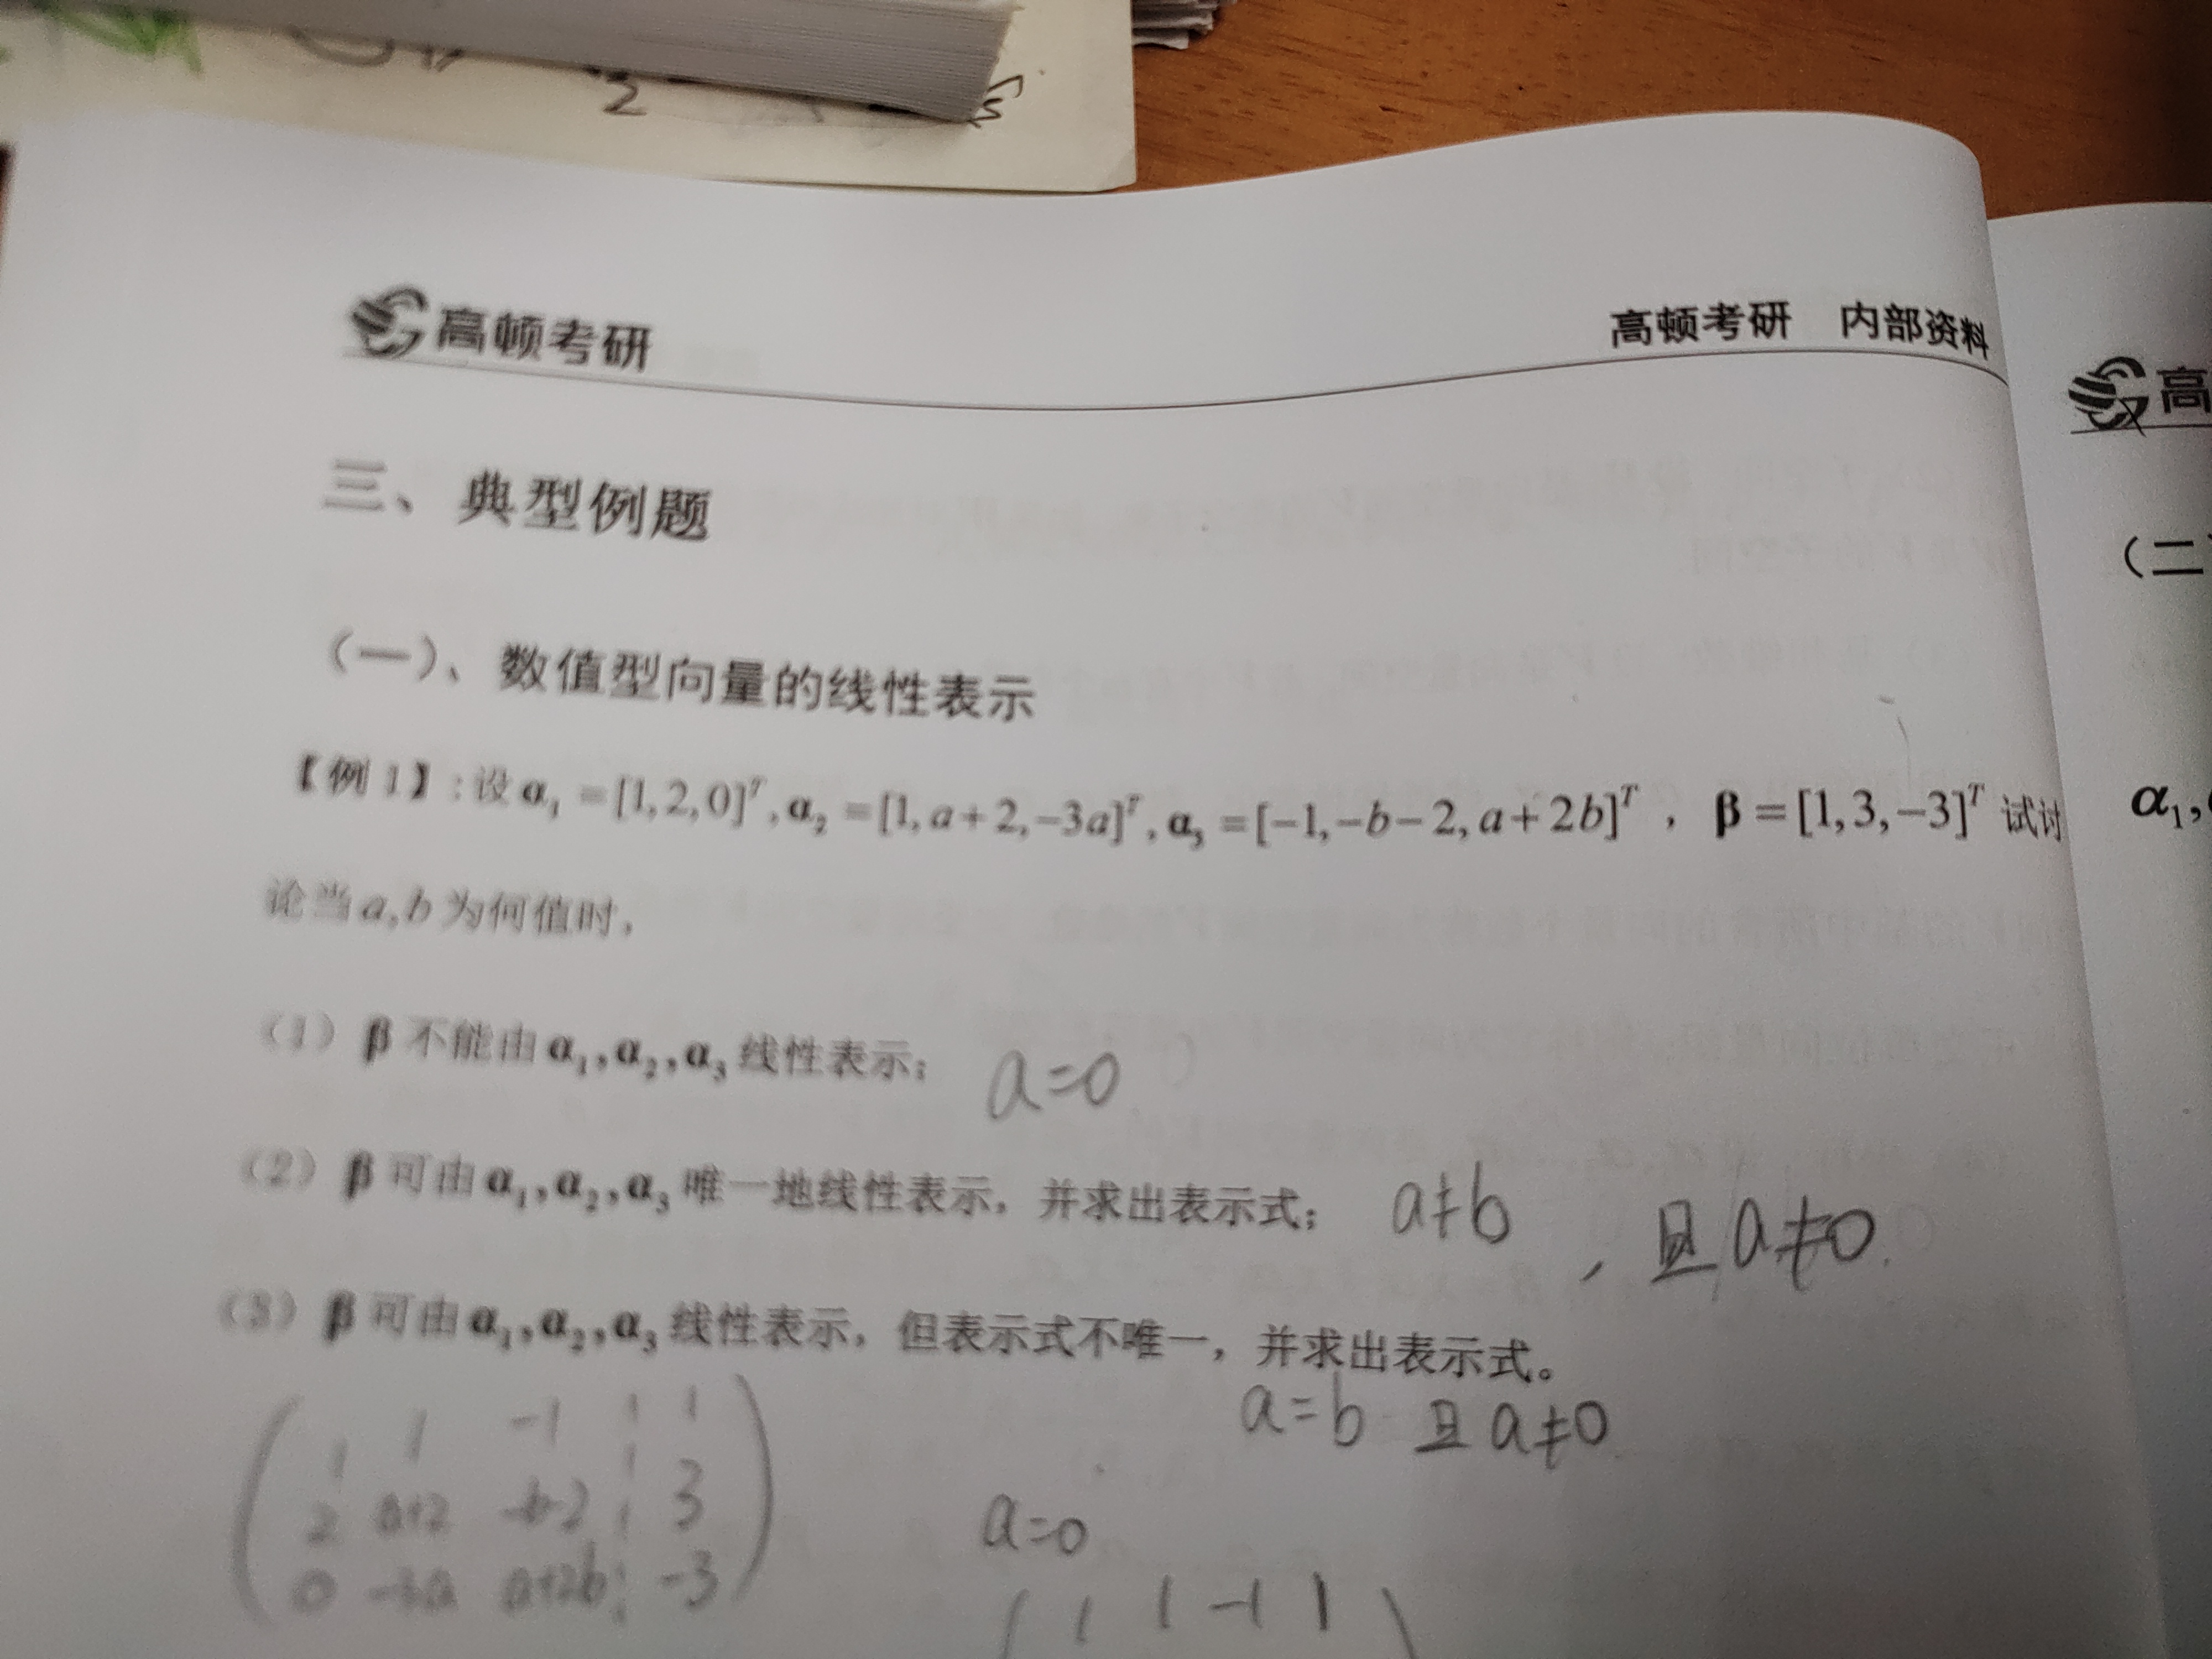 2
高顿考研
高顿考研 内部资料
三、典型例题
(一)、数值型向量的线性表示
【例 1】:设 α₁ =[1,2,0]ᵀ, α₂ =[1,a+2,−3a]ᵀ, α₃ =[−1,−b−2,a+2b]ᵀ, β=[1,3,−3]ᵀ 试讨
论当 a,b 为何值时,
(1) β 不能由 α₁,α₂,α₃ 线性表示; a=0
(2) β 可由 α₁,α₂,α₃ 唯一地线性表示, 并求出表示式; a≠b , 且 a≠0.
(3) β 可由 α₁,α₂,α₃ 线性表示, 但表示式不唯一, 并求出表示式。
a=b 且 a≠0
1 1 -1 1
2 a+2 -b-2 3
0 -3a a+2b -3
a=0
1 1 -1 1
高
(二
α₁,